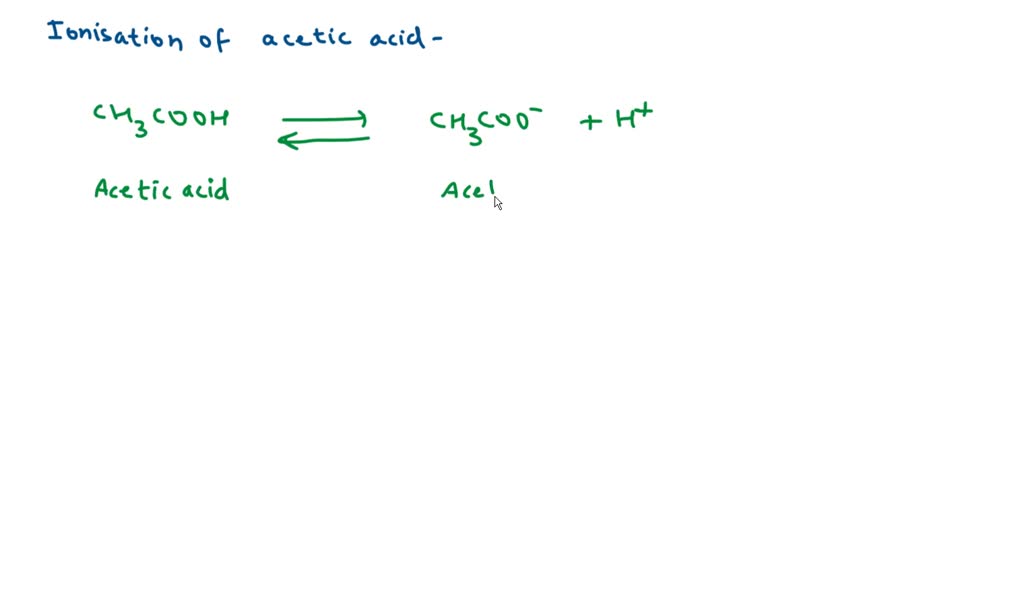 Ionisation of acetic acid -
CH₃COOH ⇌ CH₃COO⁻ + H⁺
Acetic acid Ace